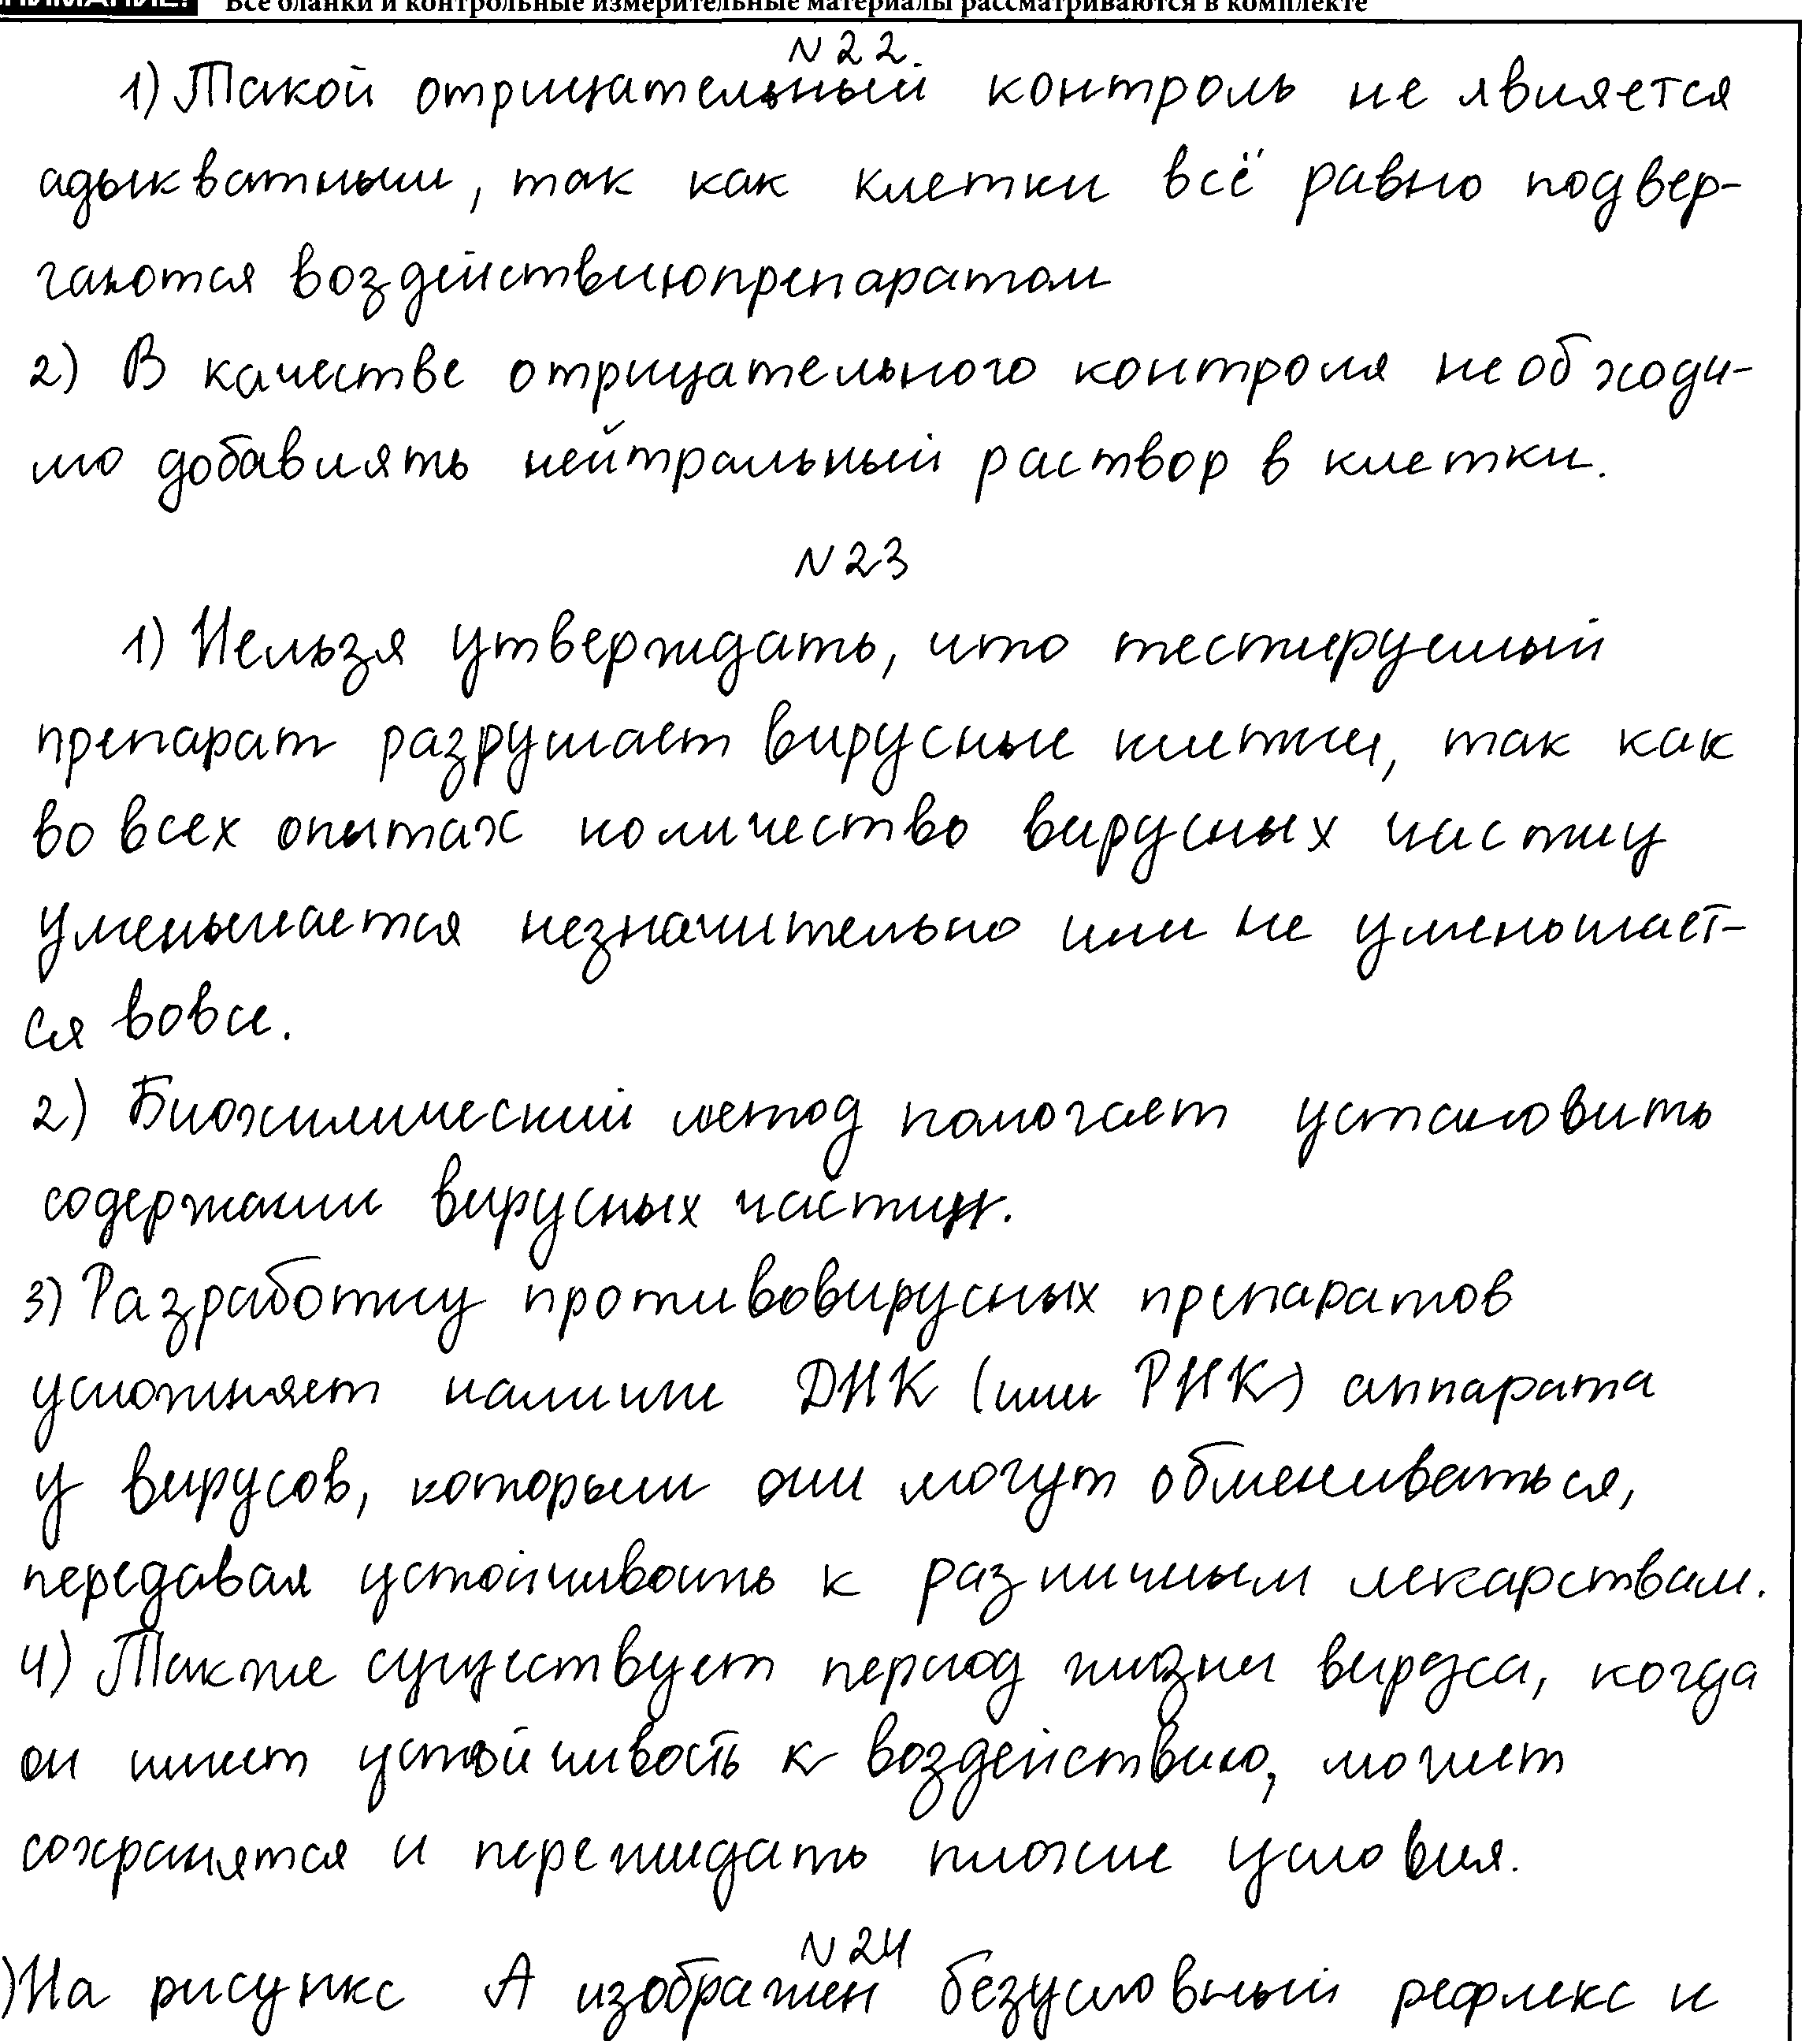 ВНИМАНИЕ! Все бланки и контрольные измерительные материалы рассматриваются в комплекте
N22.
1) Такой отрицательный контроль не является
адыкватным, так как клетки всё равно подвер-
гаются воздействиюпрепаратом
2) В качестве отрицательного контроля необходи-
мо добавлять нейтральный раствор в клетки.
N23
1) Нельзя утверждать, что тестируемый
препарат разрушает вирусные клетки, так как
во всех опытах количество вирусных частиц
уменьшается незначительно или не уменьшает-
ся вовсе.
2) Биохимический метод помогает установить
содержании вирусных частиц.
3) Разработку противовирусных препаратов
усложняет наличие ДНК (или РНК) аппарата
у вирусов, которым они могут обмениваться,
передавая устойчивость к различным лекарствам.
4) Также существует период жизни вируса, когда
он имеет устойчивость к воздействию, может
сохранятся и пережидать плохие условия.
N24
)На рисунке А изображен безусловный рефлекс и